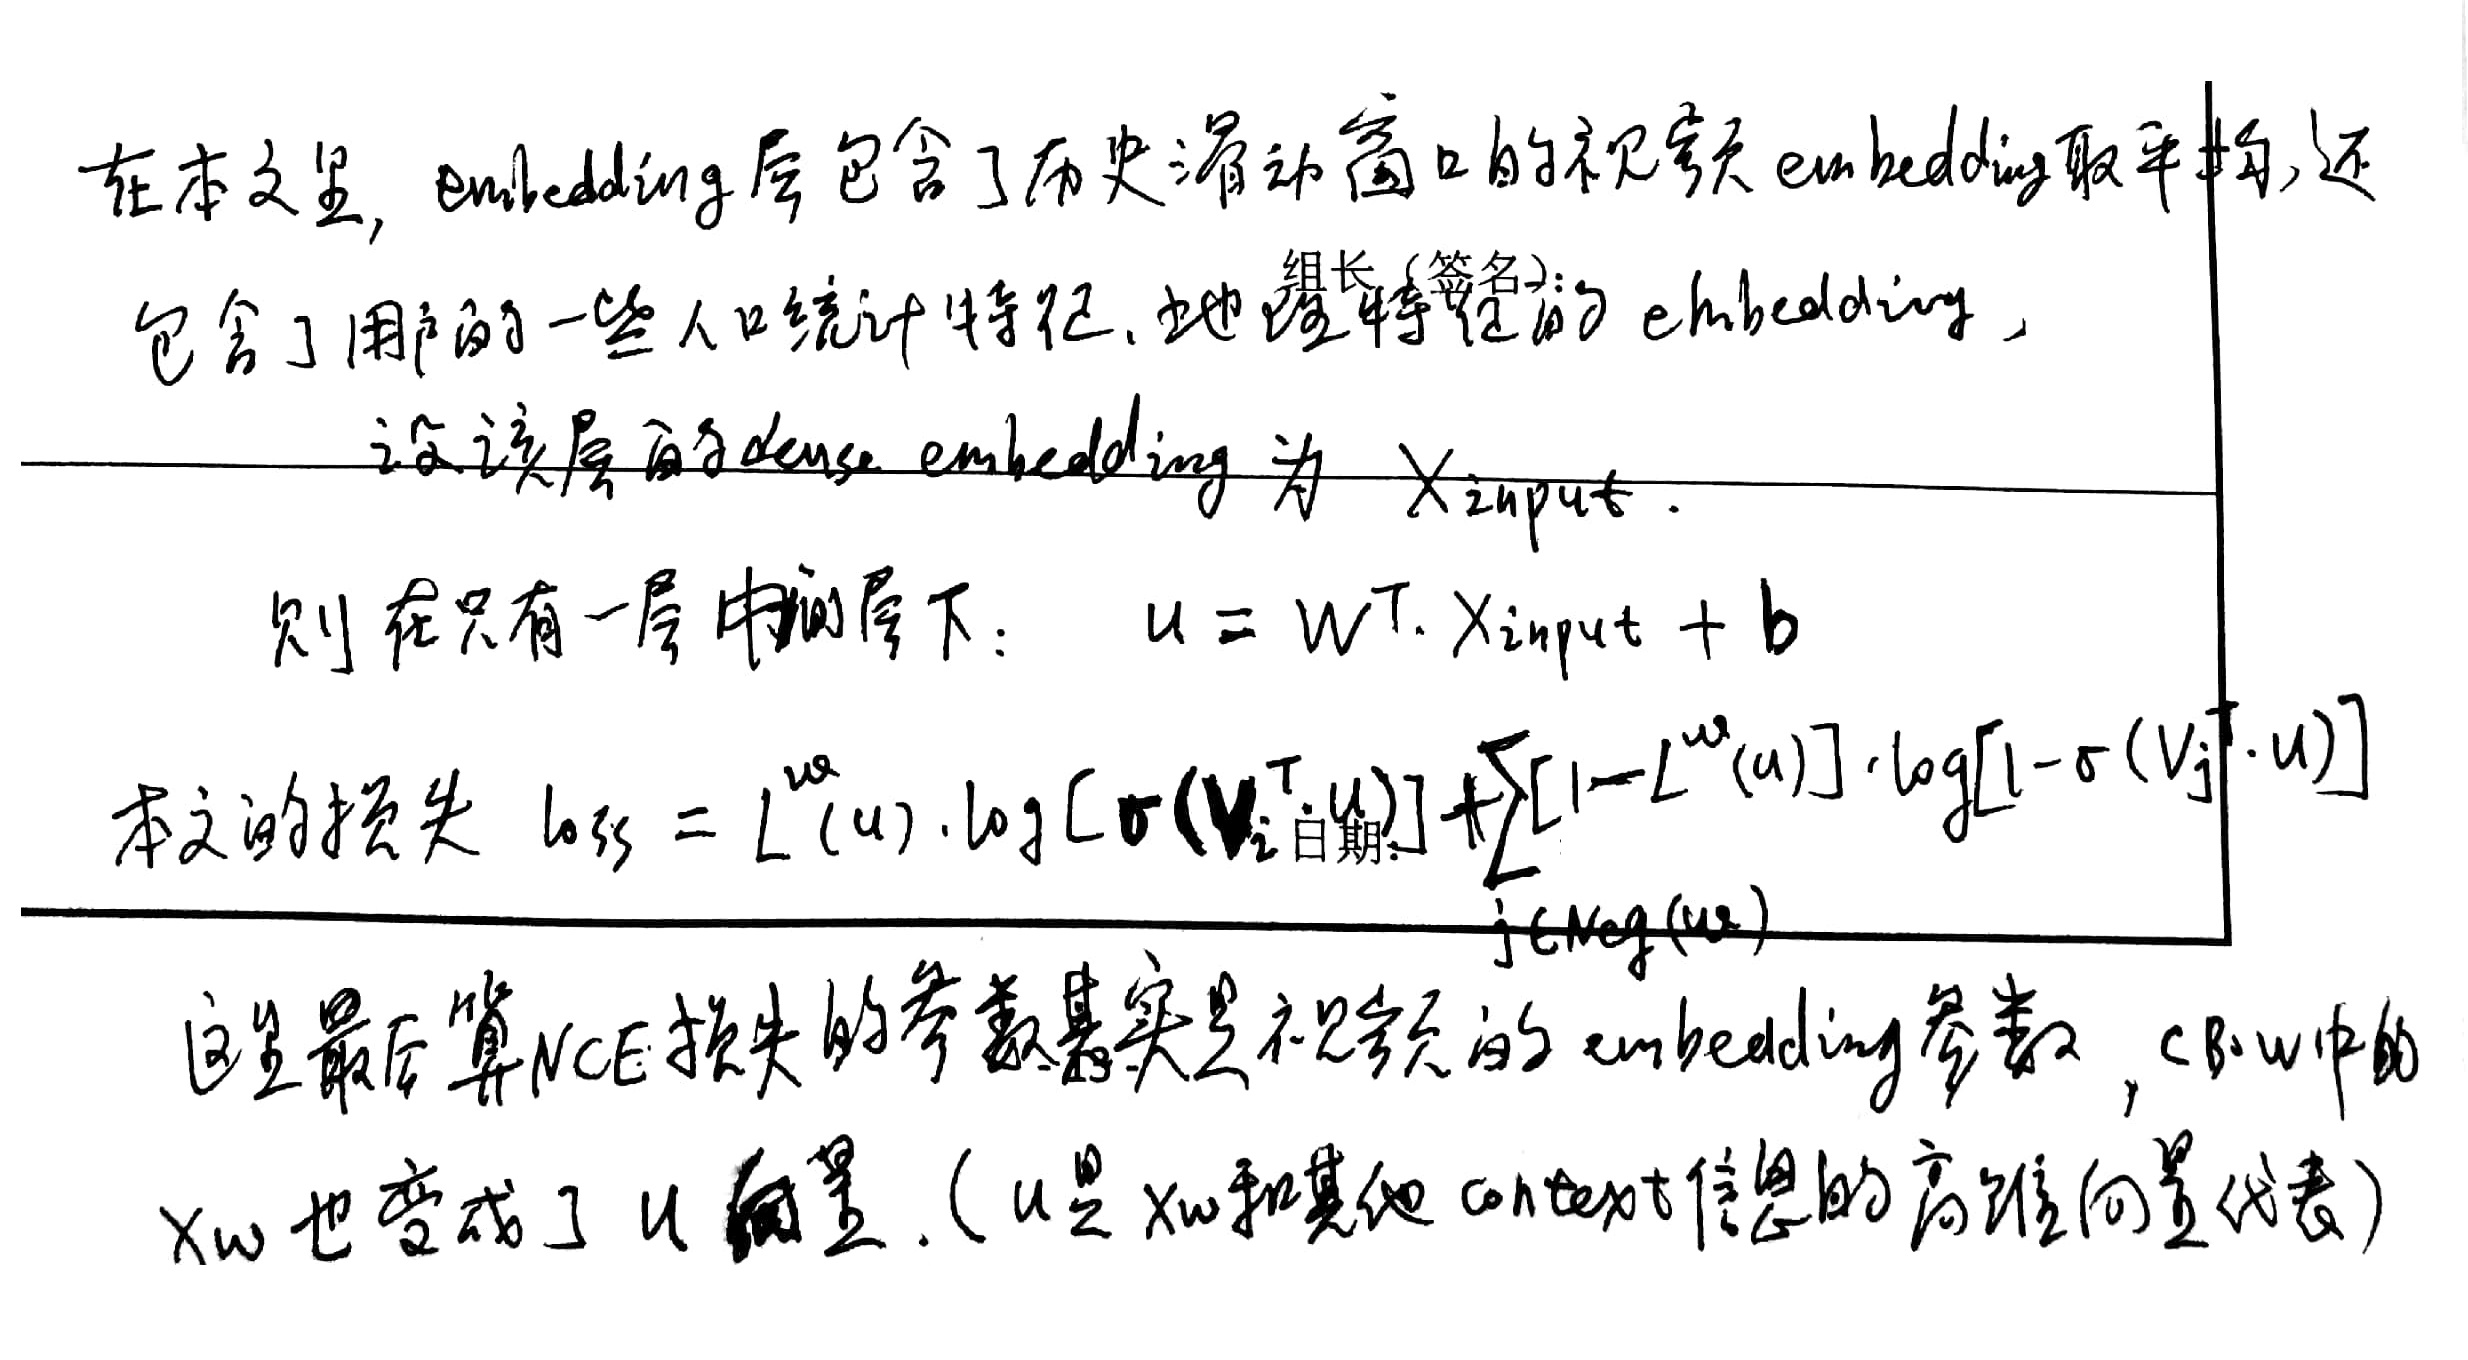 在本文里, embedding层包含了历史滑动窗口的视频embedding取平均,还
组长（签名）:
包含了用户的一些人口统计特征、地理特征的embedding,
设该层的dense embedding 为 Xinput.
则在只有一层中间层下: u = Wᵀ·Xinput + b
本文的损失 loss = Lʷ(u)·log[σ(Vᵢᵀ·u)] + ∑[1-Lʷ(u)]·log[1-σ(Vⱼᵀ·u)]
日期:
j∈Neg(w)
这里最后算NCE损失的参数其实是视频的embedding参数, CBOW中的
Xw也变成了u向量.(u是Xw和其他context信息的高维向量代表)